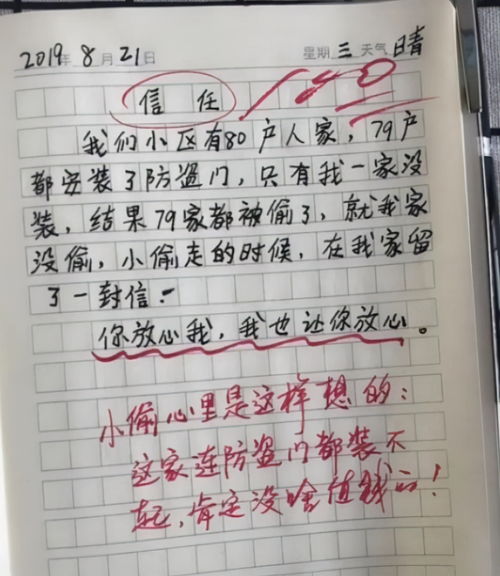 2019年8月21日 星期三 天气日晴
信任
我们小区有80户人家，79户
都安装了防盗门，只有我一家没
装，结果79家都被偷了，就我家
没偷，小偷走的时候，在我家留
了一封信：
你放心我，我也让你放心。
小偷心里是这样想的：
这家连防盗门都装不
起，肯定没啥值钱的！